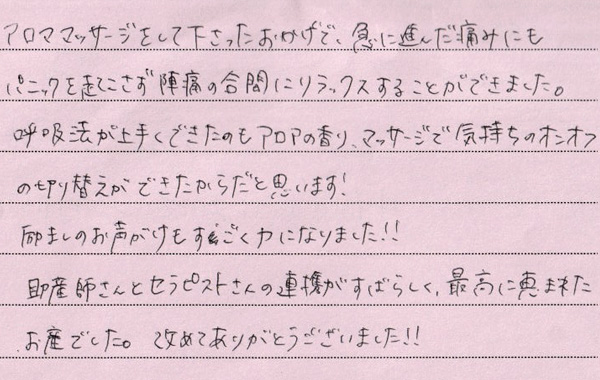 アロママッサージをして下さったおかげで、急に進んだ痛みにも
パニックを起こさず陣痛の合間にリラックスすることができました。
呼吸法が上手くできたのもアロアの香り、マッサージで気持ちのオンオフ
の切り替えができたからだと思います！
励ましのお声がけもすごく力になりました！！
助産師さんとセラピストさんの連携がすばらしく、最高に恵まれた
お産でした。改めてありがとうございました！！